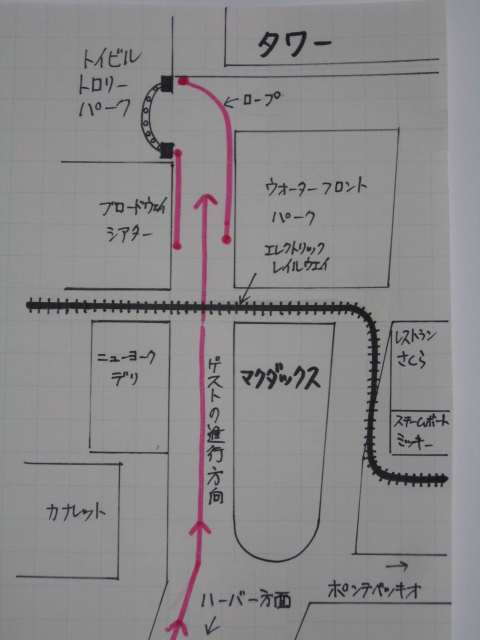 タワー
トイビル
トロリー
パーク
ロープ
ウォーターフロント
パーク
ブロードウェイ
シアター
エレクトリック
レイルウェイ
レストラン
さくら
ニューヨーク
デリ
マクダックス
ゲストの進行方向
スチームボート
ミッキー
カナレット
ハーバー方面
ポンテベッキオ